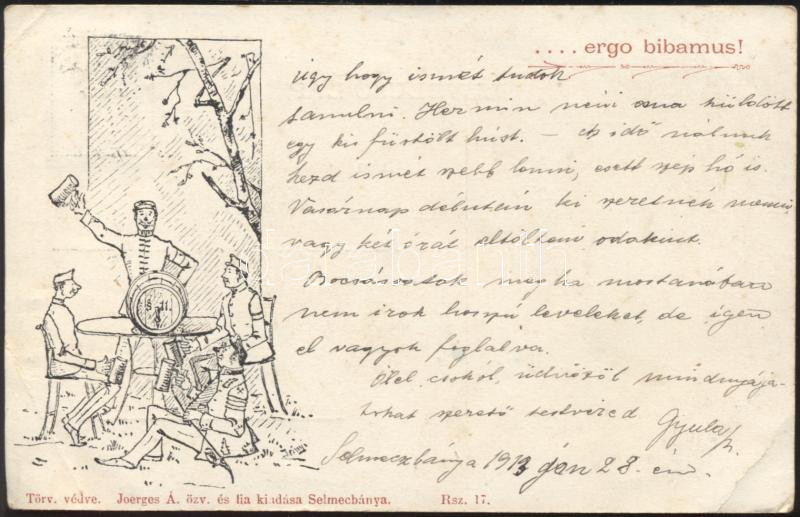 .... ergo bibamus!
úgy hogy ismét tudok
tanulni. Hermin néni ma küldött
egy kis füstölt húst. – Az idő nálunk
kezd ismét szebb lenni, esett szép hó is.
Vasárnap délután ki szeretnék menni,
vagy két órát eltölteni odakint.
Bocsássatok meg ha mostanában
nem irok hosszú leveleket, de igen
el vagyok foglalva.
Ölel, csokol, üdvözöl mindnyája-
tokat szerető testvéred
Gyula
Selmeczbánya 1913 jan 28. én.
S. 11.
Törv. védve. Joerges Á. özv. és fia kiadása Selmecbánya. Rsz. 17.
darabanth